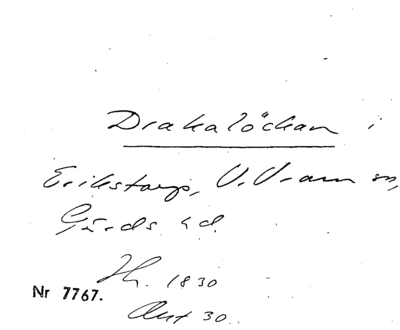 Drakalöckan i
Erikstorp, V. Vram sn,
Gärds hd.
Jh. 1830
Nr 7767.
Aut 30